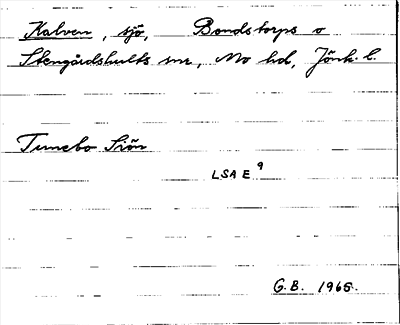 Kalven, sjö, Bondstorps o
Stengårdshults snr, Mo hd, Jönk. l.
Tunnebo Siön
LSA E 9
G.B. 1965.